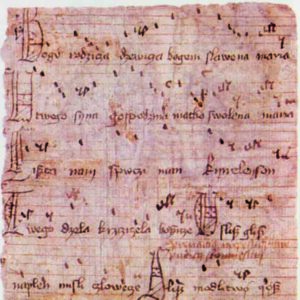 Bogu rodzicza dzewicza bogem slawena maria
U twego syna gospodzina matko swolena maria
Siszczi nam spwczi nam Kyrieleyson
Twego dzela krzcziczela bozicze Uslisz glosi
naplen misli czlowecze Slisz modlitwo yosz